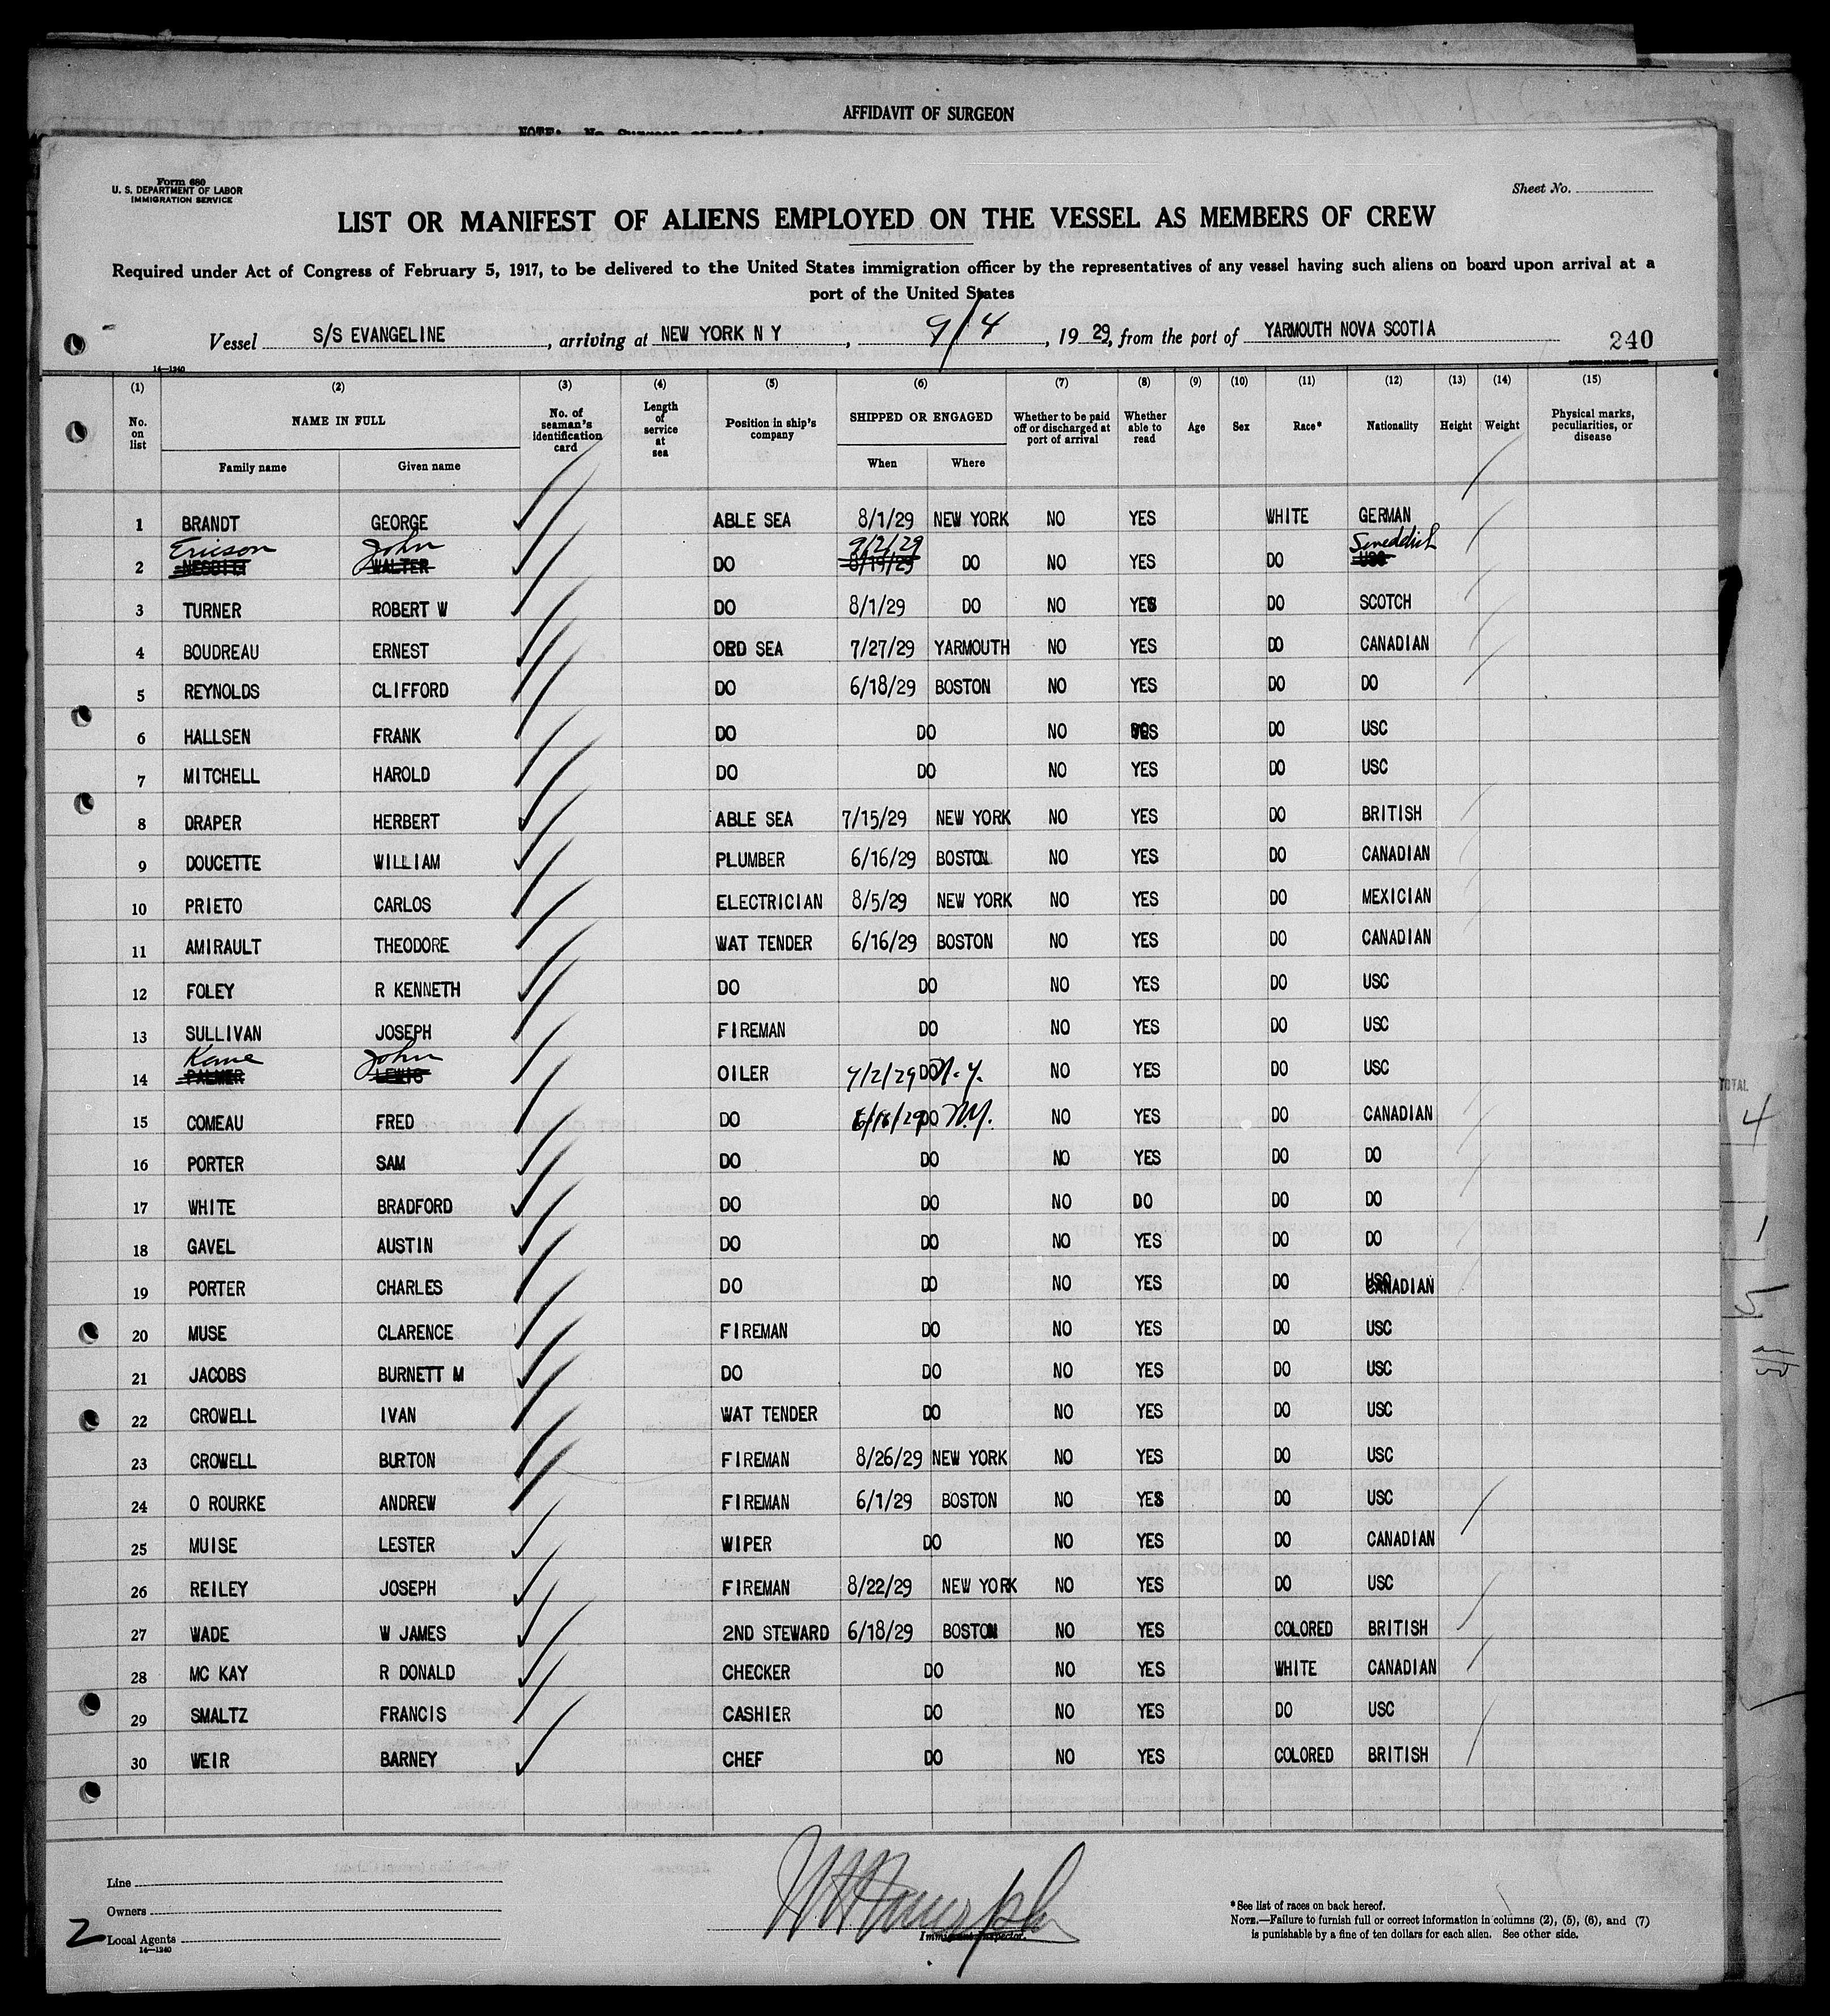 AFFIDAVIT OF SURGEON
NOTE: No Surgeon
Form 680
U. S. DEPARTMENT OF LABOR
IMMIGRATION SERVICE
Sheet No.
LIST OR MANIFEST OF ALIENS EMPLOYED ON THE VESSEL AS MEMBERS OF CREW
Required under Act of Congress of February 5, 1917, to be delivered to the United States immigration officer by the representatives of any vessel having such aliens on board upon arrival at a
port of the United States
Vessel S/S EVANGELINE, arriving at NEW YORK N Y, 9/4, 1929, from the port of YARMOUTH NOVA SCOTIA 240
14—1240
(1) (2) (3) (4) (5) (6) (7) (8) (9) (10) (11) (12) (13) (14) (15)
No. on list NAME IN FULL No. of seaman's identification card Length of service at sea Position in ship's company SHIPPED OR ENGAGED Whether to be paid off or discharged at port of arrival Whether able to read Age Sex Race* Nationality Height Weight Physical marks, peculiarities, or disease
Family name Given name When Where
1 BRANDT GEORGE ABLE SEA 8/1/29 NEW YORK NO YES WHITE GERMAN
Ericson John 9/2/29 Sweddish
2 NESBITT WALTER DO 8/19/29 DO NO YES DO USC
3 TURNER ROBERT W DO 8/1/29 DO NO YES DO SCOTCH
4 BOUDREAU ERNEST ORD SEA 7/27/29 YARMOUTH NO YES DO CANADIAN
5 REYNOLDS CLIFFORD DO 6/18/29 BOSTON NO YES DO DO
6 HALLSEN FRANK DO DO NO YES DO USC
7 MITCHELL HAROLD DO DO NO YES DO USC
8 DRAPER HERBERT ABLE SEA 7/15/29 NEW YORK NO YES DO BRITISH
9 DOUCETTE WILLIAM PLUMBER 6/16/29 BOSTON NO YES DO CANADIAN
10 PRIETO CARLOS ELECTRICIAN 8/5/29 NEW YORK NO YES DO MEXICIAN
11 AMIRAULT THEODORE WAT TENDER 6/16/29 BOSTON NO YES DO CANADIAN
12 FOLEY R KENNETH DO DO NO YES DO USC
13 SULLIVAN JOSEPH FIREMAN DO NO YES DO USC
Kane John
14 PALMER LEWIS OILER 9/2/29 DO N.Y. NO YES DO USC
15 COMEAU FRED DO DO N.Y. NO YES DO CANADIAN
16 PORTER SAM DO DO NO YES DO DO
17 WHITE BRADFORD DO DO NO DO DO DO
18 GAVEL AUSTIN DO DO NO YES DO DO
19 PORTER CHARLES DO DO NO YES DO CANADIAN
20 MUSE CLARENCE FIREMAN DO NO YES DO USC
21 JACOBS BURNETT M DO DO NO YES DO USC
22 CROWELL IVAN WAT TENDER DO NO YES DO USC
23 CROWELL BURTON FIREMAN 8/26/29 NEW YORK NO YES DO USC
24 O ROURKE ANDREW FIREMAN 6/1/29 BOSTON NO YES DO USC
25 MUISE LESTER WIPER DO NO YES DO CANADIAN
26 REILEY JOSEPH FIREMAN 8/22/29 NEW YORK NO YES DO USC
27 WADE W JAMES 2ND STEWARD 6/18/29 BOSTON NO YES COLORED BRITISH
28 MC KAY R DONALD CHECKER DO NO YES WHITE CANADIAN
29 SMALTZ FRANCIS CASHIER DO NO YES DO USC
30 WEIR BARNEY CHEF DO NO YES COLORED BRITISH
TOTAL
4
1
5
Line
Owners
2 Local Agents
14—1240
Immigrant Inspector.
*See list of races on back hereof.
NOTE.—Failure to furnish full or correct information in columns (2), (5), (6), and (7)
is punishable by a fine of ten dollars for each alien. See other side.